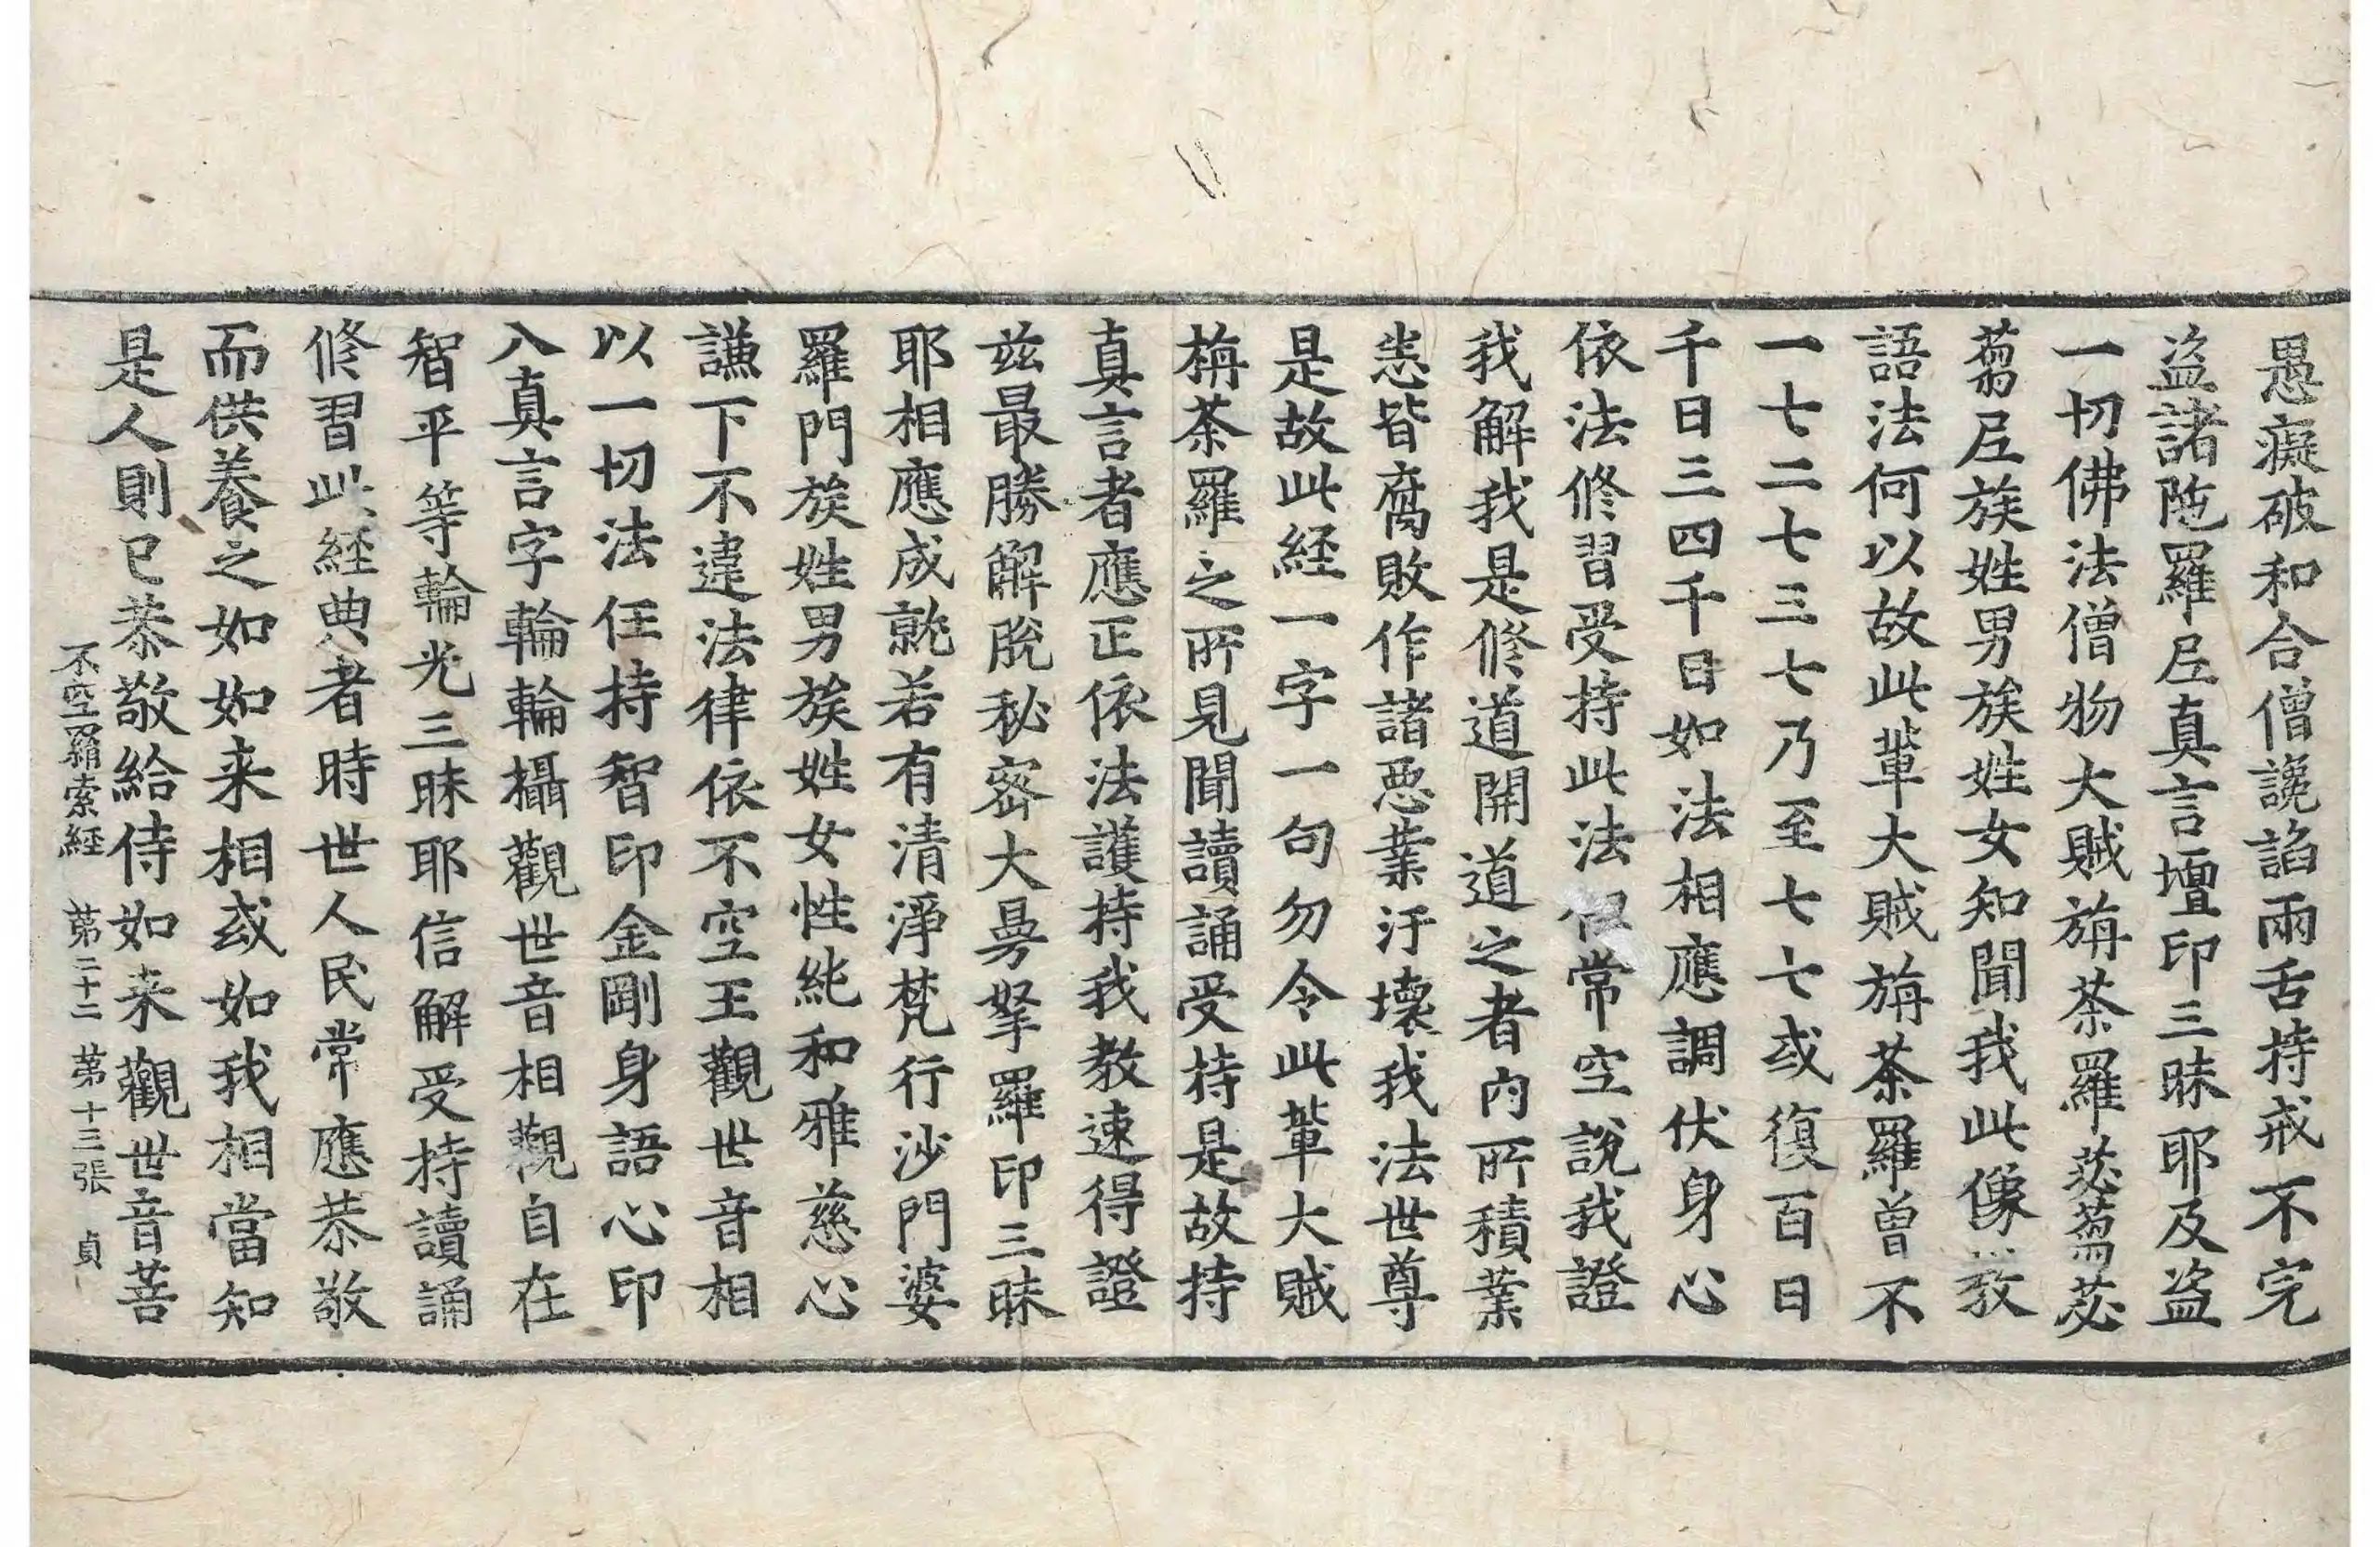 愚癡破和合僧讒諂兩舌持戒不完
盜諸陁羅尼真言壇印三昧耶及盜
一切佛法僧物大賊旃荼羅苾蒭苾
蒭尼族姓男族姓女知聞我此像教
語法何以故此輩大賊旃荼羅曾不
一七二七三七乃至七七或復百日
千日三四千日如法相應調伏身心
依法修習受持此法但常空說我證
我解我是修道開道之者內所積業
恙皆腐敗作諸惡業汙壞我法世尊
是故此経一字一句勿令此輩大賊
栴荼羅之所見聞讀誦受持是故持
真言者應正依法護持我教速得證
兹最勝解脫秘密大曼拏羅印三昧
耶相應成就若有清淨梵行沙門婆
羅門族姓男族姓女性純和雅慈心
謙下不違法律依不空王觀世音相
以一切法任持智印金剛身語心印
八真言字輪輪攝觀世音相觀自在
智平等輪光三昧耶信解受持讀誦
修習此経典者時世人民常應恭敬
而供養之如如来相或如我相當知
是人則已恭敬給侍如来觀世音菩
不空羂索経 第二十二 第十三張 貞